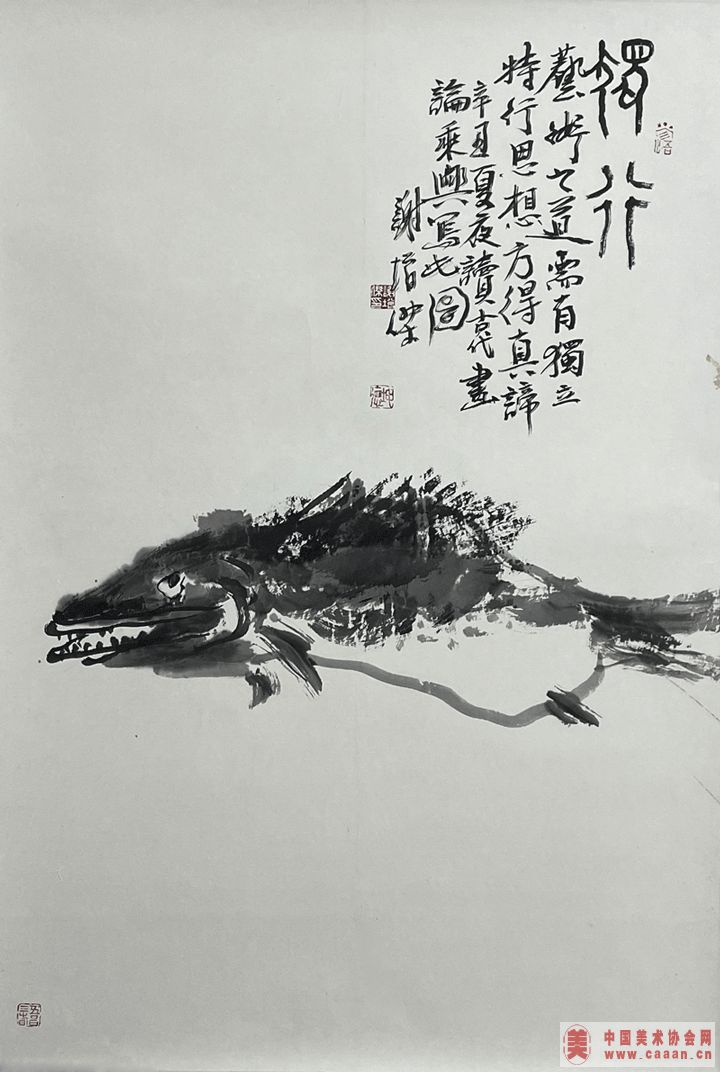 獨行
藝術之道需有獨立
特行思想方得真諦
辛丑夏夜讀古代畫
論乘興寫此圖
謝增傑
美
中国美术协会网
www.caaan.cn